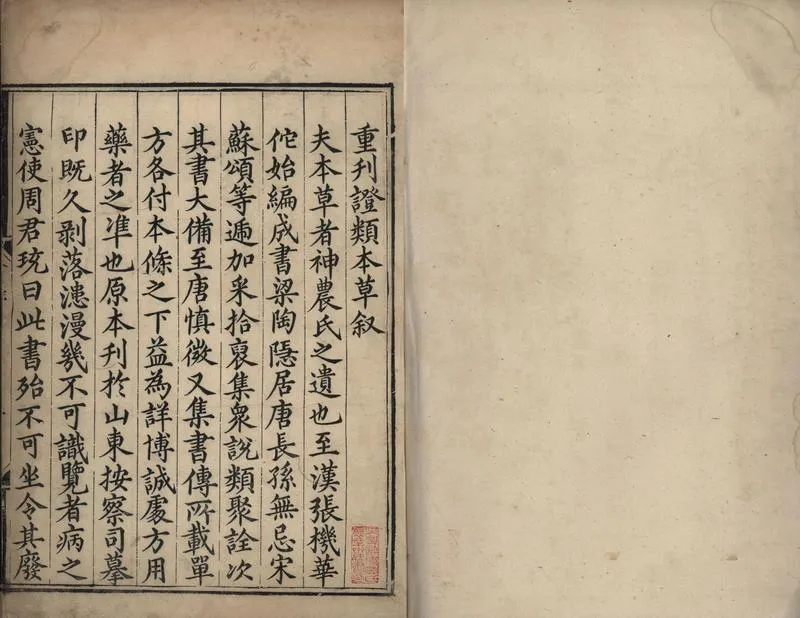 重刋證類本草叙
夫本草者神農氏之遺也至漢張機華
佗始編成書梁陶隱居唐長孫無忌宋
蘇頌等遞加采拾裒集衆說類聚詮次
其書大備至唐慎微又集書傳所載單
方各付本條之下益為詳博誠處方用
藥者之準也原本刋於山東按察司摹
印既久剥落漶漫幾不可識覽者病之
憲使周君珫曰此書殆不可坐令其廢